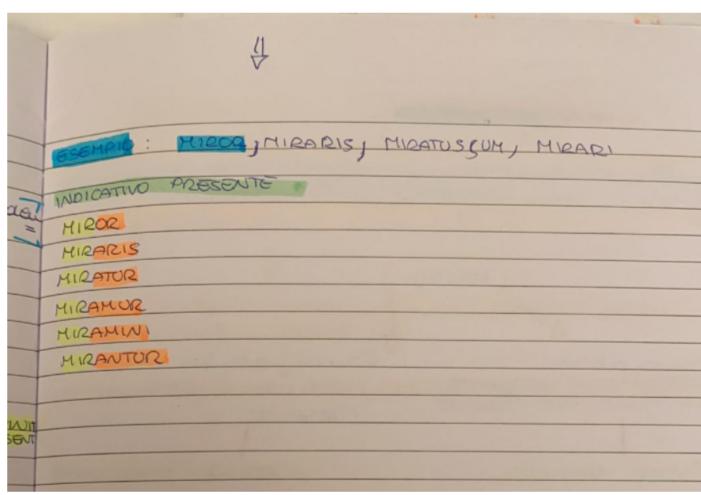 ESEMPIO : MIROR, MIRARIS, MIRATUS SUM, MIRARI
INDICATIVO PRESENTE
MIROR
MIRARIS
MIRATUR
MIRAMUR
MIRAMINI
MIRANTUR